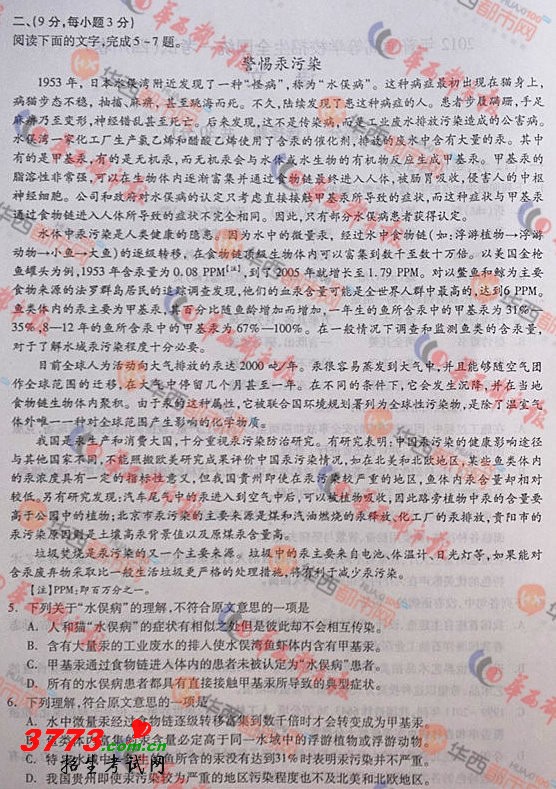 二、(9分,每小题3分)
阅读下面的文字,完成5~7题。
警惕汞污染
1953年,日本水俣湾附近发现了一种“怪病”,称为“水俣病”。这种病症最初出现在猫身上,
病猫步态不稳,抽搐、麻痹,甚至跳海而死。不久,陆续发现了患这种病症的人。患者步履蹒跚,手足
麻痹乃至变形,神经错乱甚至死亡。后来发现,这不是传染病,而是工业废水排放污染造成的公害病。
水俣湾一家化工厂生产氯乙烯和醋酸乙烯使用了含汞的催化剂,排放的废水中含有大量的汞。其中
有的是甲基汞,有的是无机汞,而无机汞会与水体及水生物的有机物反应生成甲基汞。甲基汞的
脂溶性非常强,可以在生物体内逐渐富集并通过食物链最终进入人体,被肠胃吸收,侵害人的中枢
神经细胞。公司和政府对水俣病的认定只考虑直接接触甲基汞所导致的症状,而这种症状与甲基汞
通过食物链进入人体所导致的症状不完全相同。因此,只有部分水俣病患者获得认定。
水体中汞污染是人类健康的隐患。因为水中的微量汞,经过水中食物链(如:浮游植物→浮游
动物→小鱼→大鱼)的逐级转移,在食物链顶级生物体内可以富集到数千至数十万倍。以美国金枪
鱼罐头为例,1953年含汞量为0.08 PPM【注】,到了2005年就增长至1.79 PPM。对以鳖鱼和鲸为主要
食物来源的法罗群岛居民的追踪调查发现,他们的血汞含量可能是全世界人群中最高的,达到6 PPM。
鱼类体内的汞主要为甲基汞,其百分比随鱼龄增加而增加,一年生的鱼所含汞中的甲基汞为31%—
35%,8—12年的鱼所含汞中的甲基汞为67%—100%。在一般情况下调查和监测鱼类的含汞量,
对于了解水域汞污染程度十分必要。
目前全球人为活动向大气排放的汞达2000吨/年。汞很容易蒸发到大气中,并且能够随空气团
作全球范围的迁移,在大气中停留几个月甚至一年。在不同的条件下,它会发生沉降,并在当地
食物链生物体内聚积。由于汞的这种属性,它被联合国环境规划署列为全球性污染物,是除了温室气
体外唯一一种对全球范围产生影响的化学物质。
我国是汞生产和消费大国,十分重视汞污染防治研究。有研究表明:中国汞污染的健康影响途径
与其他国家不同,不能照搬欧美研究成果评价中国汞污染情况,如在北美和北欧地区,某些鱼类体内
的汞浓度具有一定的指标性意义,但我国贵州即使在汞污染较严重的地区,鱼体内汞含量却相对
较低。另有研究发现:汽车尾气中的汞进入到空气中后,可以被植物吸收,因此路旁植物中汞的含量要
高于公园中的植物;北京市汞污染的主要来源是煤和汽油燃烧的汞释放、化工厂的汞排放,贵阳市的
汞污染原因则是土壤高汞背景值以及原煤汞含量高。
垃圾焚烧是汞污染的又一个主要来源。垃圾中的汞主要来自电池、体温计、日光灯等,如果能对
含汞废弃物采取比一般生活垃圾更严格的处理措施,将有利于减少汞污染。
【注】PPM:即百万分之一。
5. 下列关于“水俣病”的理解,不符合原文意思的一项是
A. 人和猫“水俣病”的症状有相似之处但是彼此却不会相互传染。
B. 含有大量汞的工业废水的排入使水俣湾鱼虾体内含有甲基汞。
C. 甲基汞通过食物链进入体内的患者未被认定为“水俣病”患者。
D. 所有的水俣病患者都具有直接接触甲基汞所导致的典型症状。
6. 下列理解,符合原文意思的一项是
A. 水中微量汞经过食物链逐级转移富集到数千倍时才会转变成为甲基汞。
鱼类体内富集的汞含量必定高于同一水域中的浮游植物或浮游动物。
C. 特定水域中一年生的鱼所含的汞没有达到31%时表明汞污染并不严重。
D. 我国贵州即使汞污染较为严重的地区污染程度也不及北美和北欧地区。
3773.com.cn
招生考试网
华西都市报
华西都市网